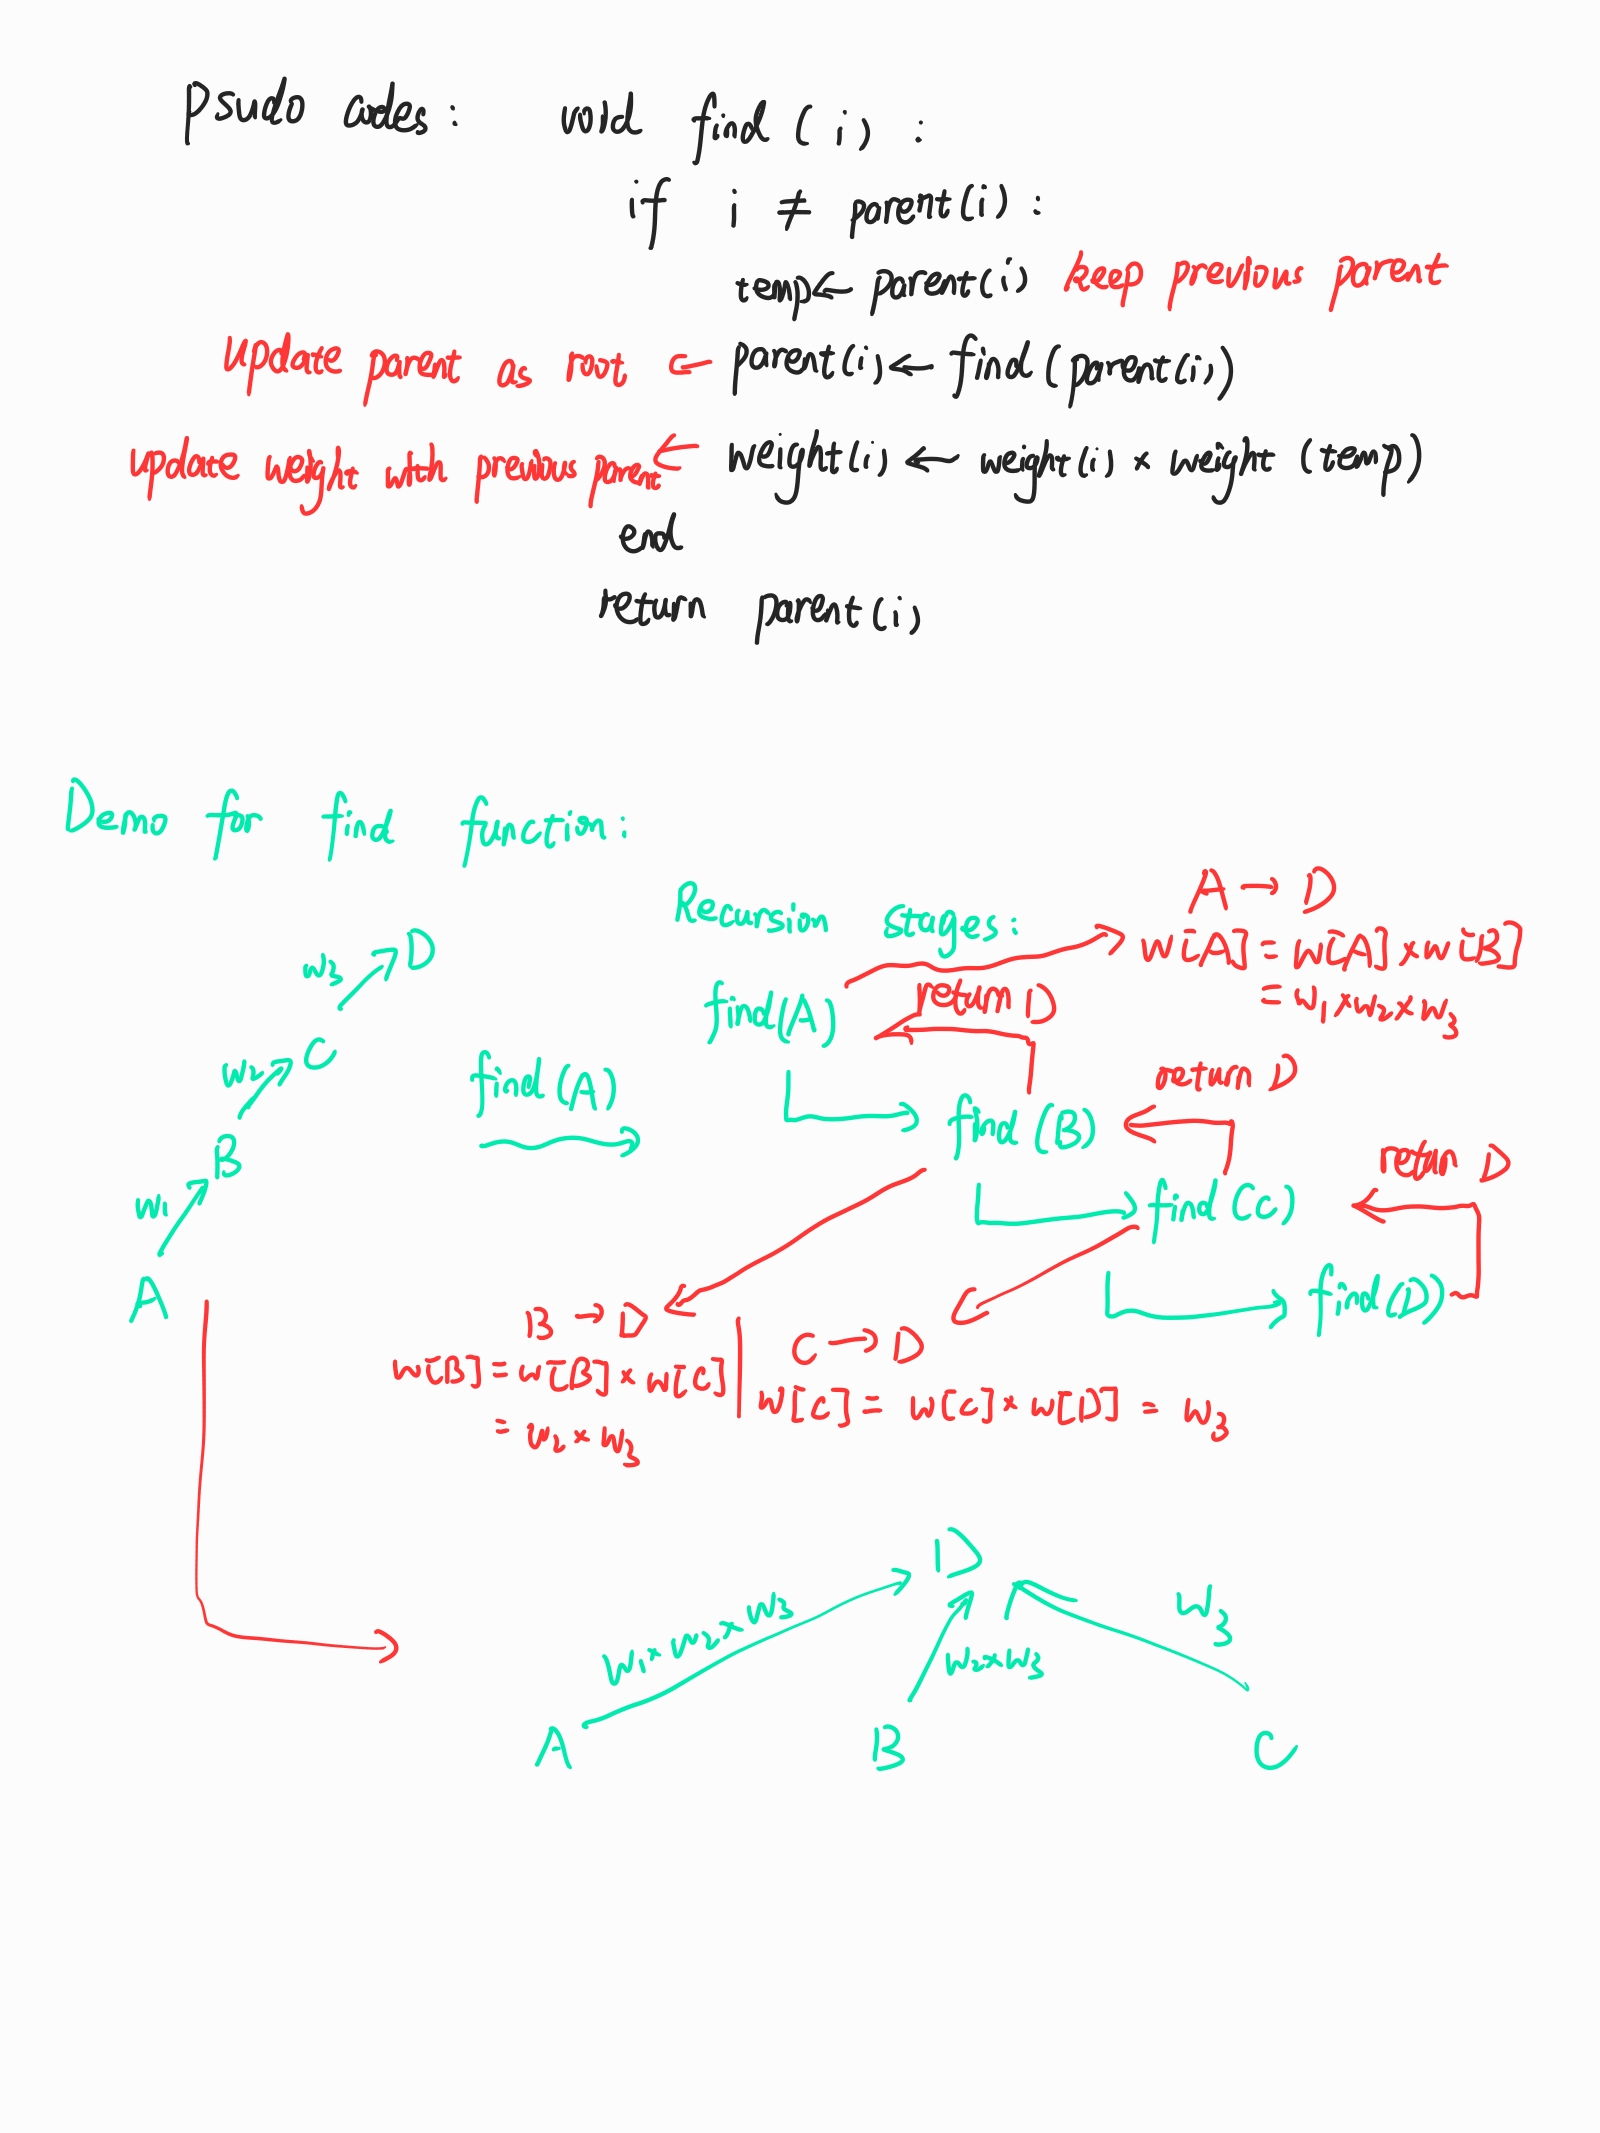 psudo codes : void find ( i ) :
if i ≠ parent(i) :
temp ← parent(i) keep previous parent
update parent as root ← parent(i) ← find(parent(i))
update weight wth previous parent ← weight(i) ← weight(i) × weight (temp)
end
return parent(i)
Demo for find function :
Recursion stages :
A → D
w[A] = w[A] × w[B]
= w₁ × w₂ × w₃
D
w₃
find(A)
return D
C
w₂
find(A)
return D
find (B)
B
return D
w₁
find (C)
A
find(D)
B → D
w[B] = w[B] × w[C]
= w₂ × w₃
C → D
w[C] = w[C] × w[D] = w₃
D
w₁ × w₂ × w₃
w₂ × w₃
w₃
A
B
C